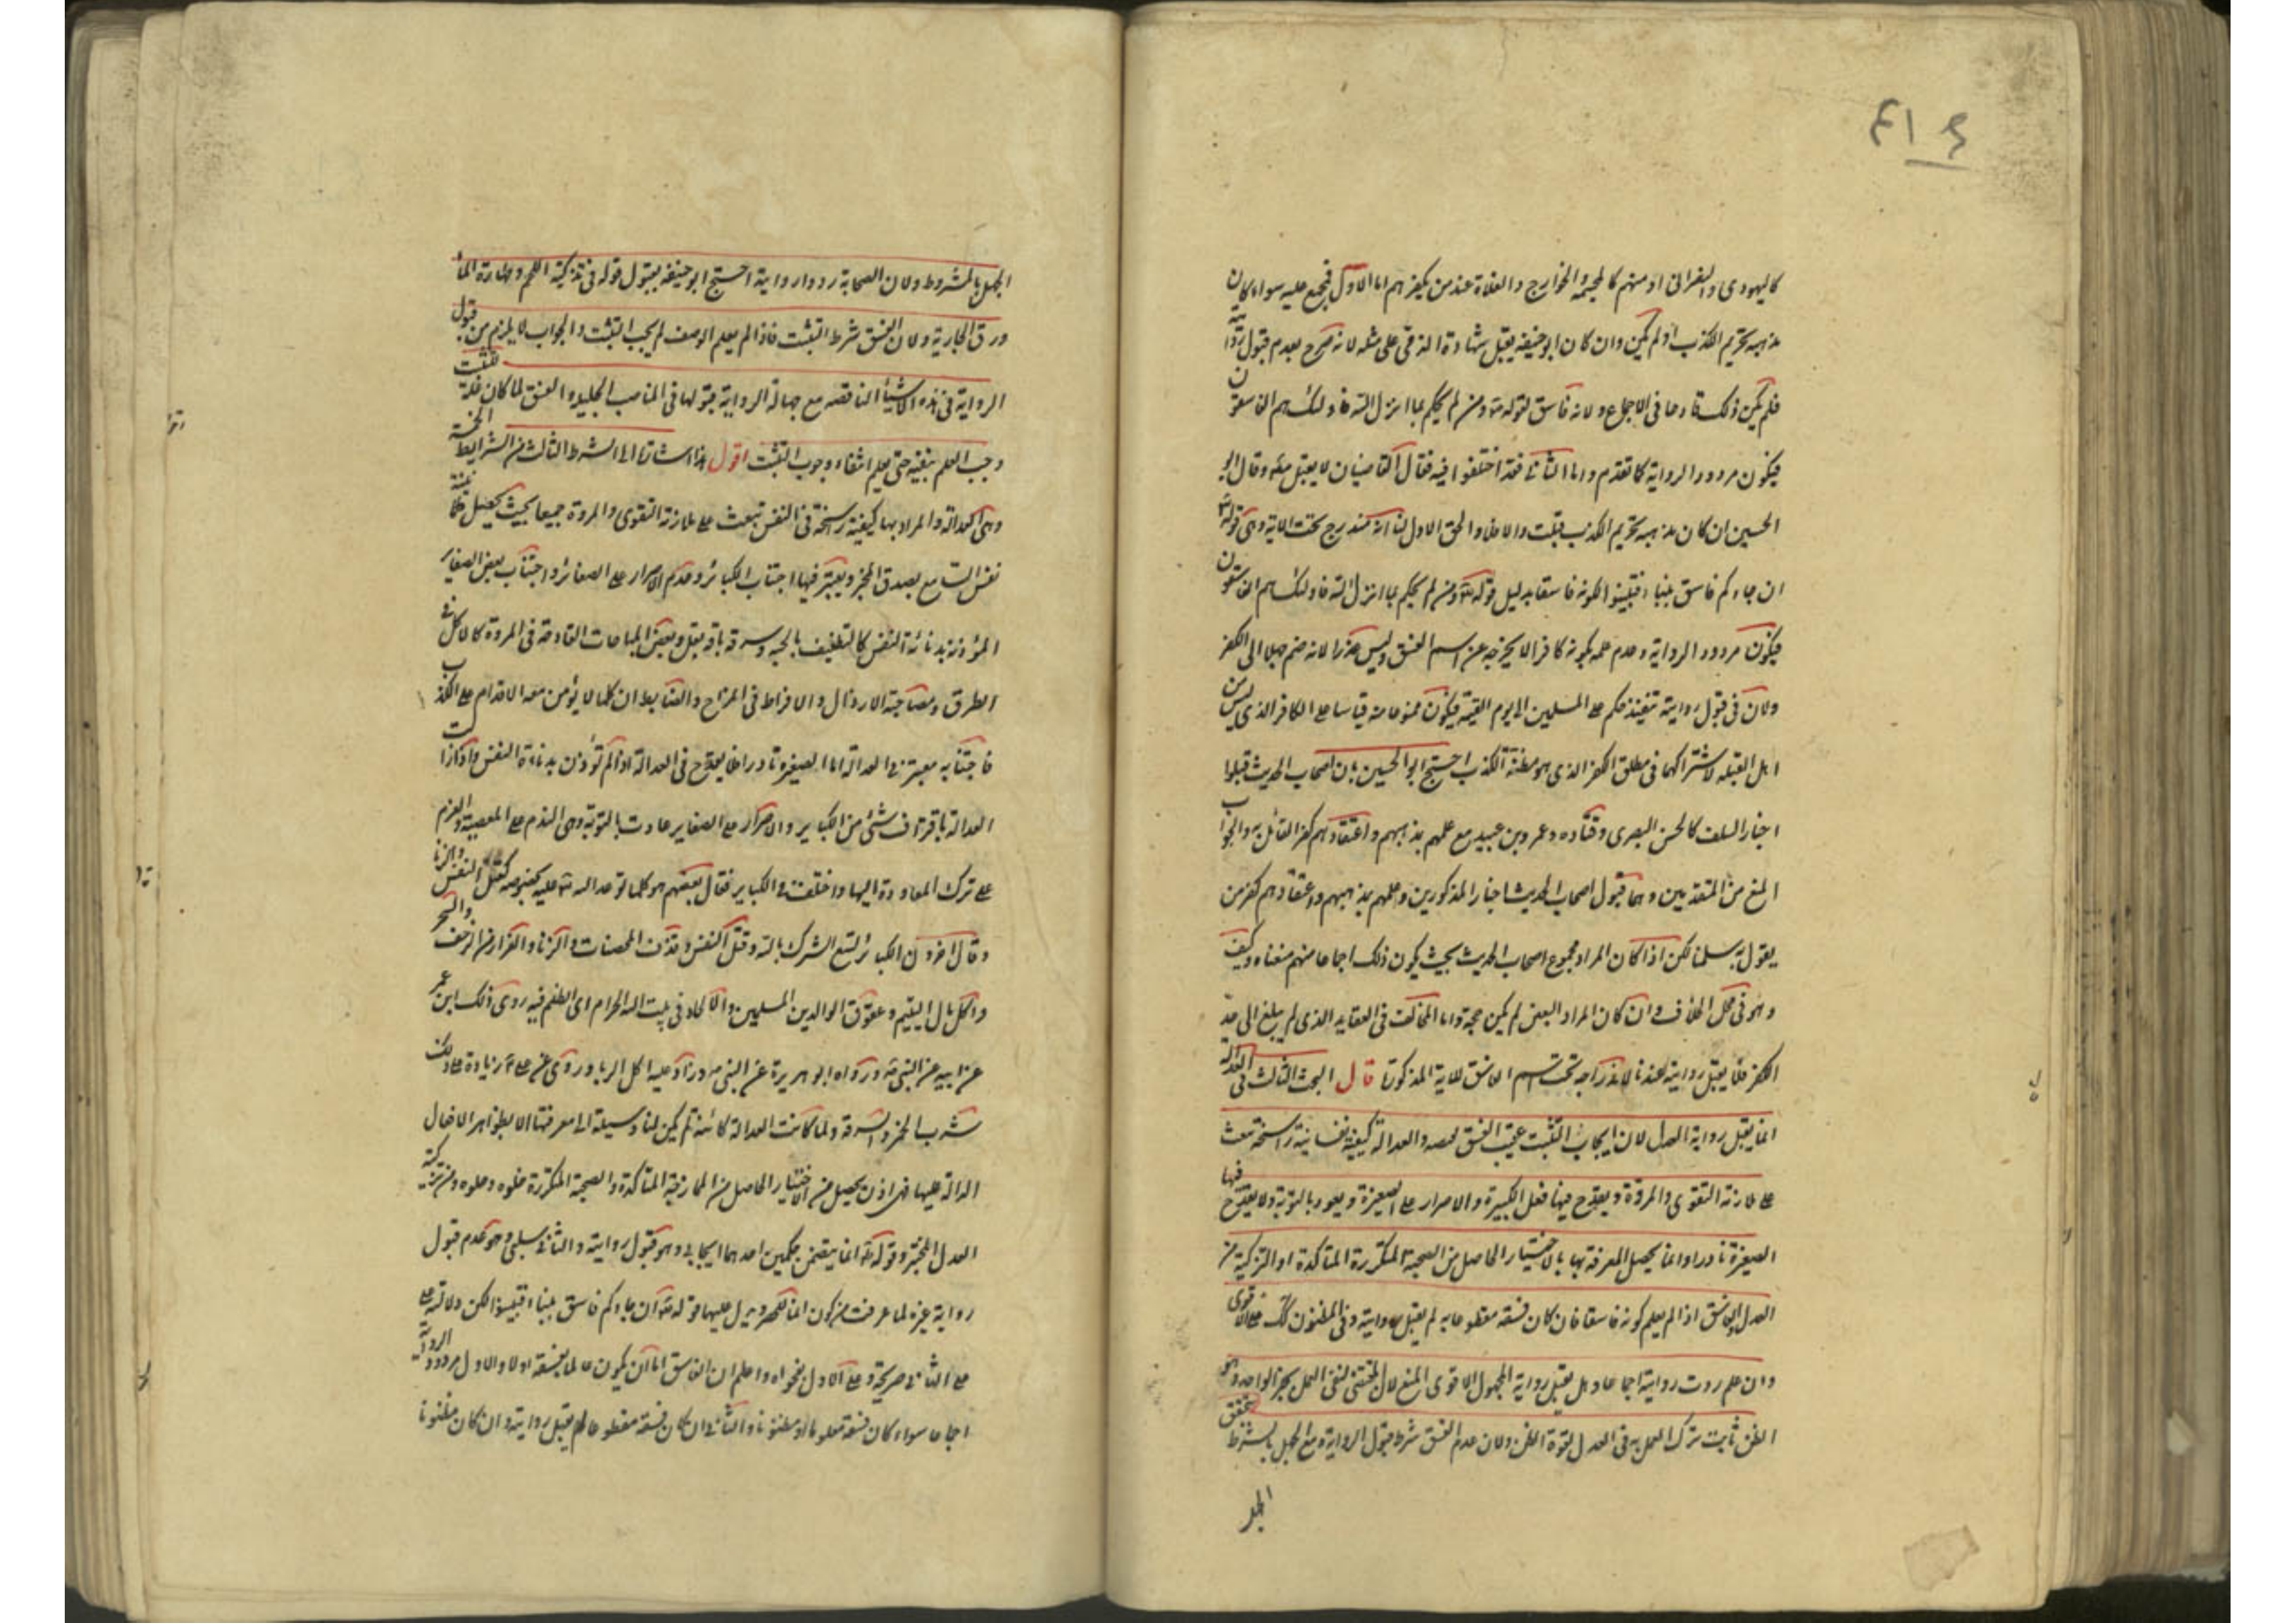 ٤١٤
كاليهودى والنصرانى او منهم كالمجسمة والخوارج والغلاة عند من يكفرهم اما الاول فمجمع عليه سواء كان
مذهبه تحريم الكذب او لم يكن وان كان ابو حنيفه يقبل شهادة الذمى على مثله لانه صرح بعدم قبول روايته
فلم يكن ذلك قادحا فى الاجماع ولانه فاسق لقوله تع ومن لم يحكم بما انزل الله فاولئك هم الفاسقون
فيكون مردود الرواية كما تقدم واما الثانى فقد اختلفوا فيه فقال القاضيان لا يقبل مطم وقال ابو
الحسين ان كان مذهبه تحريم الكذب قبلت والا فلا والحق الاول لنا انه مندرج تحت الاية وهى قوله تع
ان جاءكم فاسق بنباء فتبينوا لكونه فاسقا بدليل قوله تع ومن لم يحكم بما انزل الله فاولئك هم الفاسقون
فيكون مردود الرواية وعدم علمه بكونه كافرا لا يخرجه عن اسم الفسق وليس عذرا لانه ضم جهلا الى الكفر
ولان فى قبول روايته تنفيذ حكم على المسلمين الى يوم القيمة فيكون ممنوعا منه قياسا على الكافر الذى ليس من
اهل القبلة لاشتراكهما فى مطلق الكفر الذى هو مظنة الكذب احتج ابو الحسين بان اصحاب الحديث قبلوا
اخبار السلف كالحسن البصرى وقتاده وعمرو بن عبيد مع علمهم بمذهبهم واعتقادهم كفر القائل به والجواب
المنع من المقدمتين وهما قبول اصحاب الحديث اخبار المذكورين وعلمهم بمذهبهم واعتقادهم كفر من
يقول به سلمنا لكن اذا كان المراد مجموع اصحاب الحديث بحيث يكون ذلك اجماعا منهم منعناه وكيف
وهو فى محل الخلاف وان كان المراد البعض لم يكن حجة واما المخالف فى العقايد الذى لم يبلغ الى حد
الكفر فلا يقبل روايته عندنا لاندراجه تحت اسم الفاسق للاية المذكورة قال البحث الثالث فى العدالة
انما يقبل رواية العدل لان ايجاب التثبت عقيب الفسق لخصه والعدالة كيفية نفسانية راسخة تبعث
على ملازمة التقوى والمروة ويقدح فيها فعل الكبيرة والاصرار على الصغيرة ويعود بالتوبة ولا يقدح فيها
الصغيرة نادرا وانما يحصل المعرفة بها بالاختبار الحاصل من الصحبة المتكررة المتاكدة او التزكية من
العدل والفاسق اذا لم يعلم كونه فاسقا فان كان فسقه مقطوعا به لم يقبل روايته وفى المظنون كك على الاقوى
وان علم ردت روايته اجماعا وهل يقبل رواية المجهول الاقوى المنع لان المقتضى لنفى العمل بخبر الواحد وهو
الظن ثابت ترك العمل به فى العدل لقوة الظن ولان عدم الفسق شرط قبول الرواية ومع الجهل بالشرط يتحقق
الجهل
الجهل بالمشروط ولان الصحابة ردوا رواية احتج ابو حنيفه بقبول قوله فى تذكية اللحم وطهارة الماء
ورق الجارية ولان الفسق شرط التثبت فاذا لم يعلم الوصف لم يجب التثبت والجواب لا يلزم من قبول
الرواية فى هذه الاشياء الناقصه مع جهالة الرواية قبولها فى المناصب الجليلة والفسق لما كان علة تثبت
وجب العلم بنفيه حتى يعلم انتفاء وجوب التثبت اقول هذا اشارة الى الشرط الثالث من الشرايط الخمسة
وهى العدالة والمراد بها كيفية راسخة فى النفس تبعث على ملازمة التقوى والمروة جميعا بحيث يحصل طمانينة
نفس السامع بصدق المخبر ويعتبر فيها اجتناب الكبائر وعدم الاصرار على الصغائر واجتناب بعض الصغاير
المؤذنة بدنائة النفس كالتطفيف بالحبه وسرقة باقة بقل وبعض المباحات القادحة فى المروة كالاكل فى
الطرق ومصاحبة الارذال والافراط فى المزاح والضابط ان كلما لا يؤمن معه الاقدام على الكذب
فاجتنابه معتبر فى العدالة اما الصغيرة نادرا فلا يقدح فى العدالة اذا لم تؤذن بدناءة النفس واذا زالت
العدالة باقتراف شىء من الكباير والاصرار على الصغاير عادت بالتوبة وهى الندم على المعصية والعزم
على ترك المعاودة اليها واختلف فى الكباير فقال بعضهم هو كلما توعد الله تع عليه بخصوصه كقتل النفس والزنا
وقال اخرون الكبائر تسع الشرك بالله وقتل النفس وقذف المحصنات والزنا والفرار من الزحف والسحر
واكل مال اليتيم وعقوق الوالدين المسلمين والالحاد فى بيت الله الحرام اى الظلم فيه روى ذلك ابن عمر
عن ابيه عن النبى ص ورواه ابو هريرة عن النبى ص وزاد عليه اكل الربا وروى عن على ع زيادة على ذلك
شرب الخمر والسرقة ولما كانت العدالة كامنة لم يكن لنا وسيلة الى معرفتها الا بظواهر الافعال
الدالة عليها فهى اذن يحصل من الاختبار الحاصل من الممازجة المتاكدة والصحبة المتكررة خلوه وجلوه ومن تزكية
العدل المخبر وقوله تع انما يتضمن حكمين احدهما ايجابى وهو قبول روايته والثانى سلبى وهو عدم قبول
رواية غيره لما عرفت من كون انما للحصر ويدل عليهما قوله تع ان جاءكم فاسق بنباء فتبينوا لكن دلالته على
على الثانى صريحة وعلى الاول بفحواه واعلم ان الفاسق اما ان يكون عالما بفسقه اولا والاول مردود الرواية
اجماعا سواء كان فسقه معلوما او مظنونا والثانى ان كان فسقه مقطوعا لم يقبل روايته وان كان مظنونا